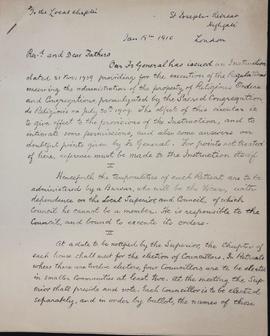 To the Local Chapter
St Joseph's Retreat
Highgate
London
Jan 15th 1910
Revd. and Dear Fathers
Our Fr General has issued an Instruction
dated 21 Nov. 1909 providing for the execution of the Regulations
concerning the administration of the property of Religious Orders
and Congregations promulgated by the Sacred Congregation
de Religiosis on July 30th 1909. The object of this circular is
to give effect to the provisions of the Instruction, and to
intimate some permissions, and also some answers on
doubtful points given by Fr General. For points not treated
of here, reference must be made to the Instruction itself.
Henceforth the temporalities of each Retreat are to be
administered by a Bursar, who will be the Vicar, with
dependence on the Local Superior and Council, of which
Council he cannot be a member. He is responsible to the
Council, and bound to execute its orders.
At a date to be notified by the Superior, the Chapter of
each house shall meet for the election of Councillors. In Retreats
where there are twelve electors, four Councillors are to be elected
in smaller communities at least two. At the meeting the Supe-
rior shall preside and vote. Each Councillor is to be elected
separately, and in order by ballot, the names of those